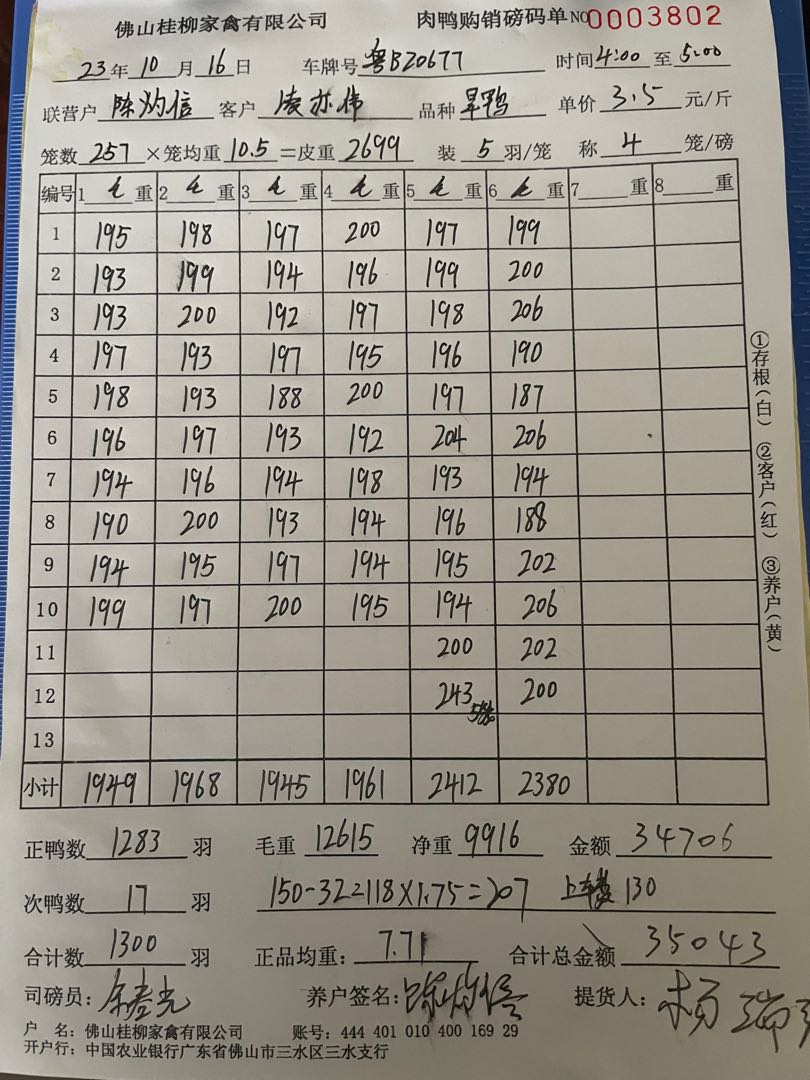 佛山桂柳家禽有限公司 肉鸭购销磅码单 NO 0003802
23年10月16日 车牌号 粤BZ0677 时间 4:00 至 5:00
联营户 陈灼信 客户 凌亦伟 品种 旱鸭 单价 3.5 元/斤
笼数 257 ×笼均重 10.5 =皮重 2699 装 5 羽/笼 称 4 笼/磅
编号 1 毛 重 2 毛 重 3 毛 重 4 毛 重 5 毛 重 6 毛 重 7 重 8 重
1 195 198 197 200 197 199
2 193 199 194 196 199 200
3 193 200 192 197 198 206
4 197 193 197 195 196 190
5 198 193 188 200 197 187
6 196 197 193 192 204 206
7 194 196 194 198 193 194
8 190 200 193 194 196 188
9 194 195 197 194 195 202
10 199 197 200 195 194 206
11 200 202
12 243 5笼 200
13
小计 1949 1968 1945 1961 2412 2380
①存根(白) ②客户(红) ③养户(黄)
正鸭数 1283 羽 毛重 12615 净重 9916 金额 34706
次鸭数 17 羽 150-32=118×1.75=207 上车费 130
合计数 1300 羽 正品均重: 7.71 合计总金额 35043
司磅员: 养户签名: 陈灼信 提货人: 杨
户 名: 佛山桂柳家禽有限公司 账号: 444 401 010 400 169 29
开户行: 中国农业银行广东省佛山市三水区三水支行